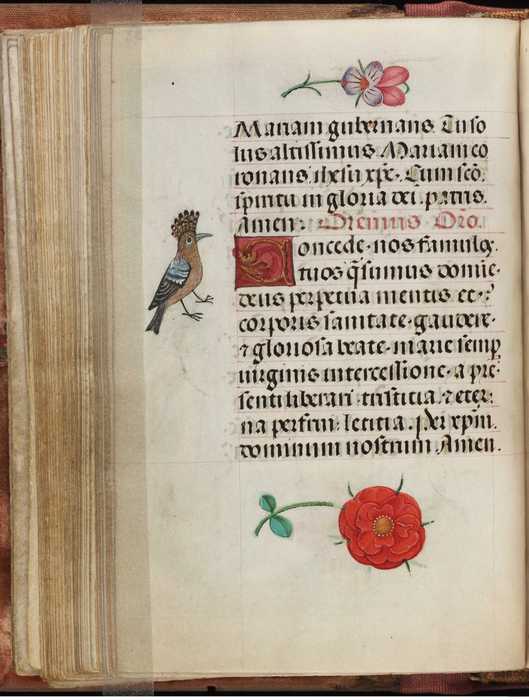 Mariam gubernans. Tu so
lus altissimus Mariam co
ronans ihesu xpe. Cum sco.
spiritu in gloria dei. patris.
Amen. Oremus Oro.
Concede. nos famulos
tuos qsumus domine.
deus perpetua mentis et.
corporis sanitate. gaudere.
⁊ gloriosa beate. marie semp
uirginis intercessione. a pre
senti liberari. tristicia. ⁊ eter
na perfrui. leticia. Per xpm.
dominum nostrum. Amen.